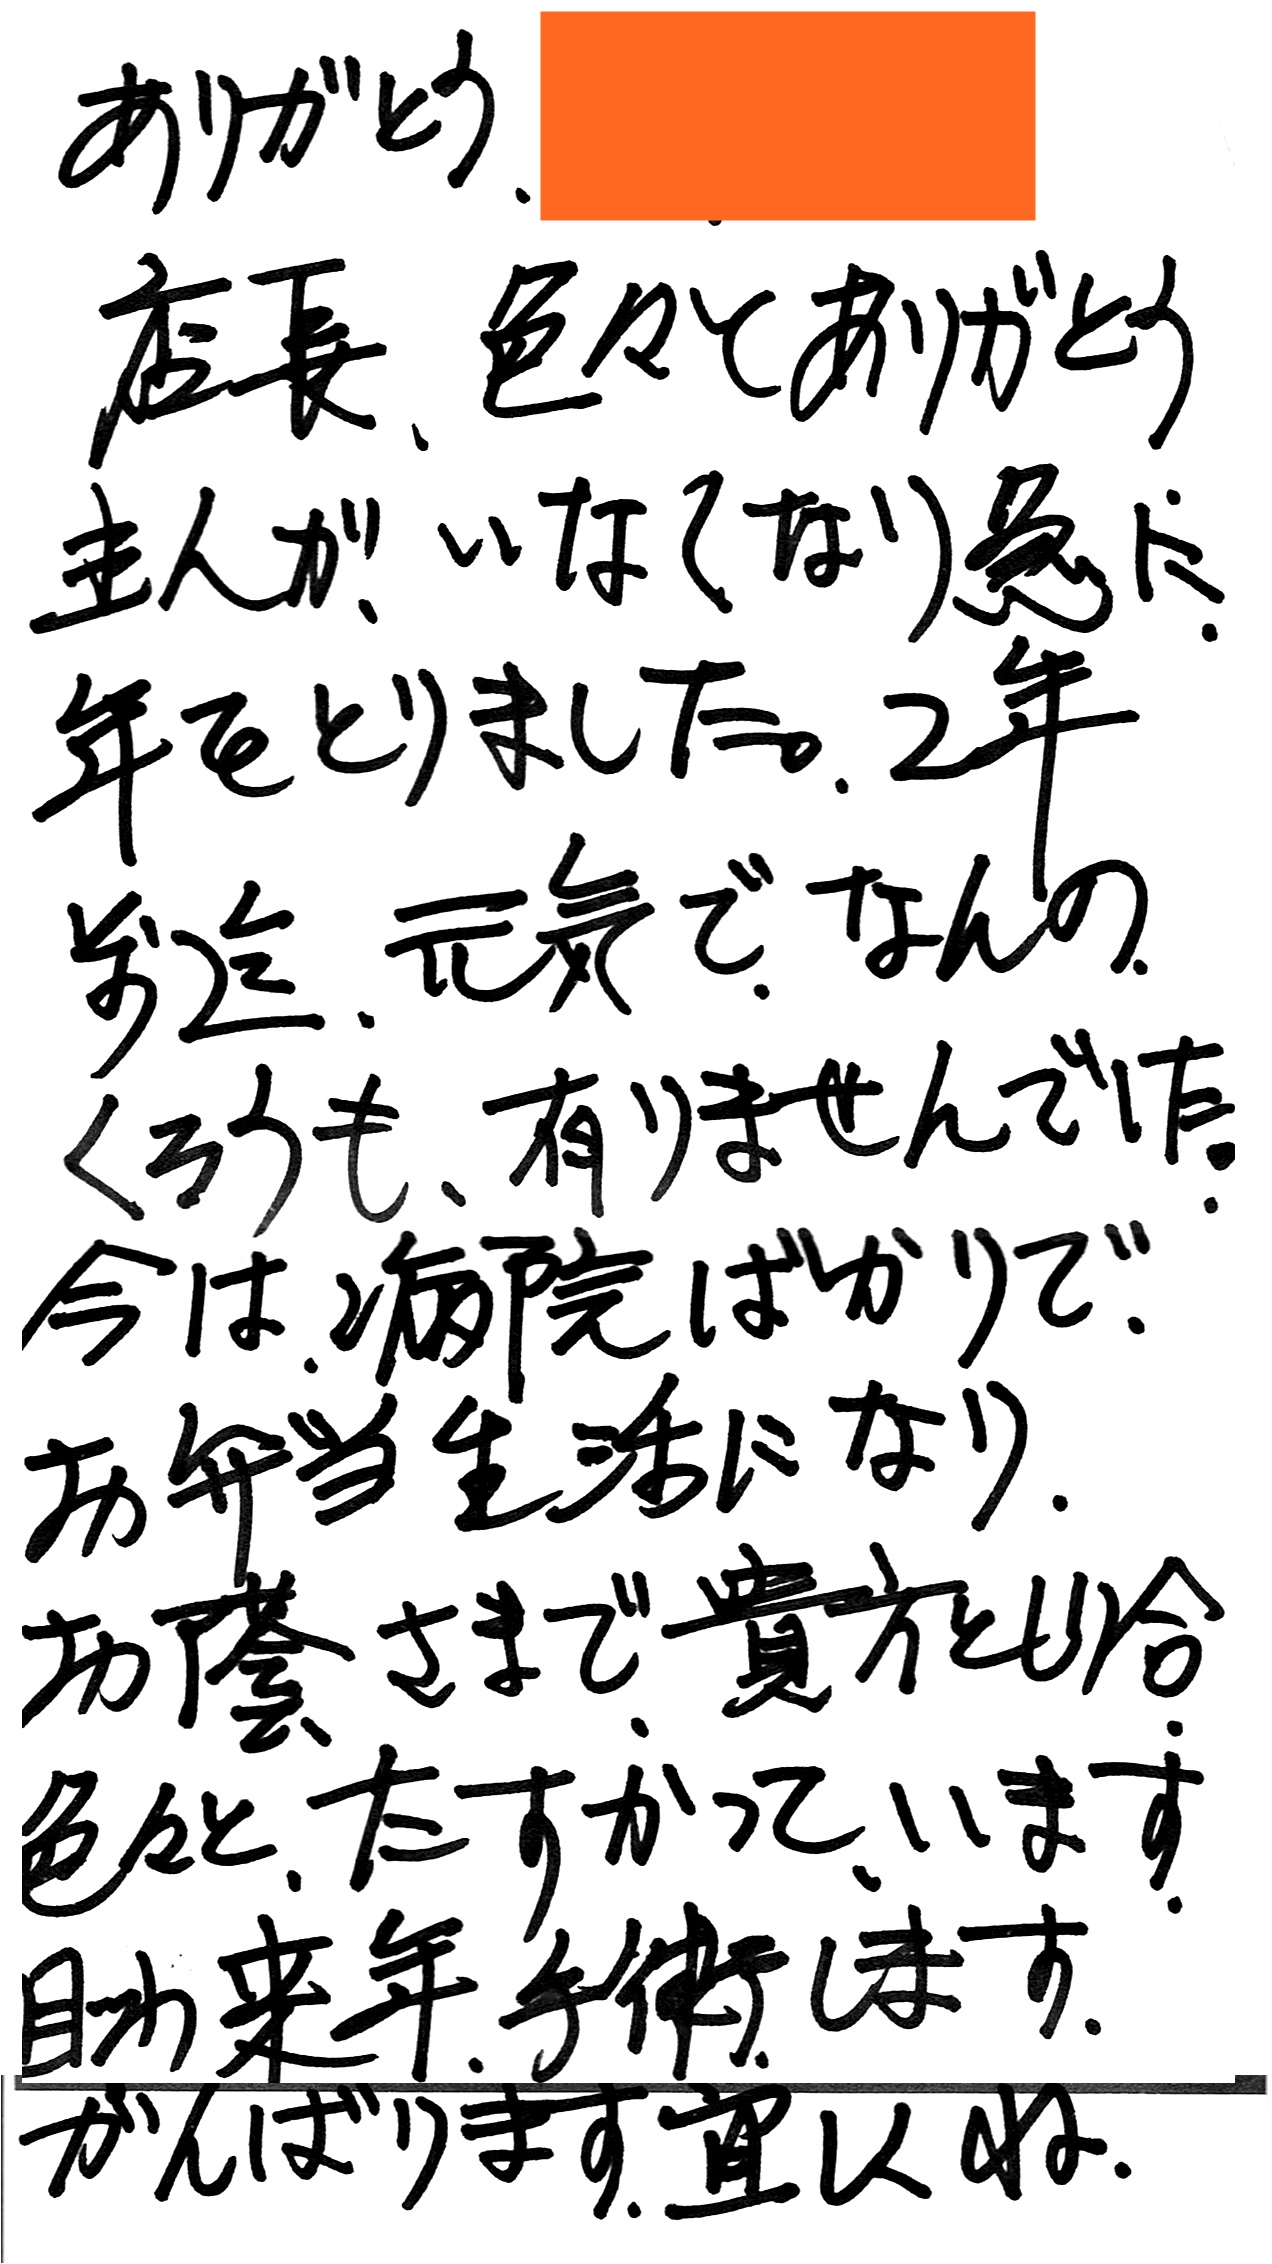 ありがとう、
店長、色々とありがとう
主人が、いなくなり急に、
年をとりました。2年
前迄、元気で、なんの
くろうも、有りませんでした。
今は、病院ばかりで、
お弁当生活になり、
お蔭さまで、貴方とも知合、
色々と、たすかって、います。
目わ来年、手術します。
がんばります。宜しくね。